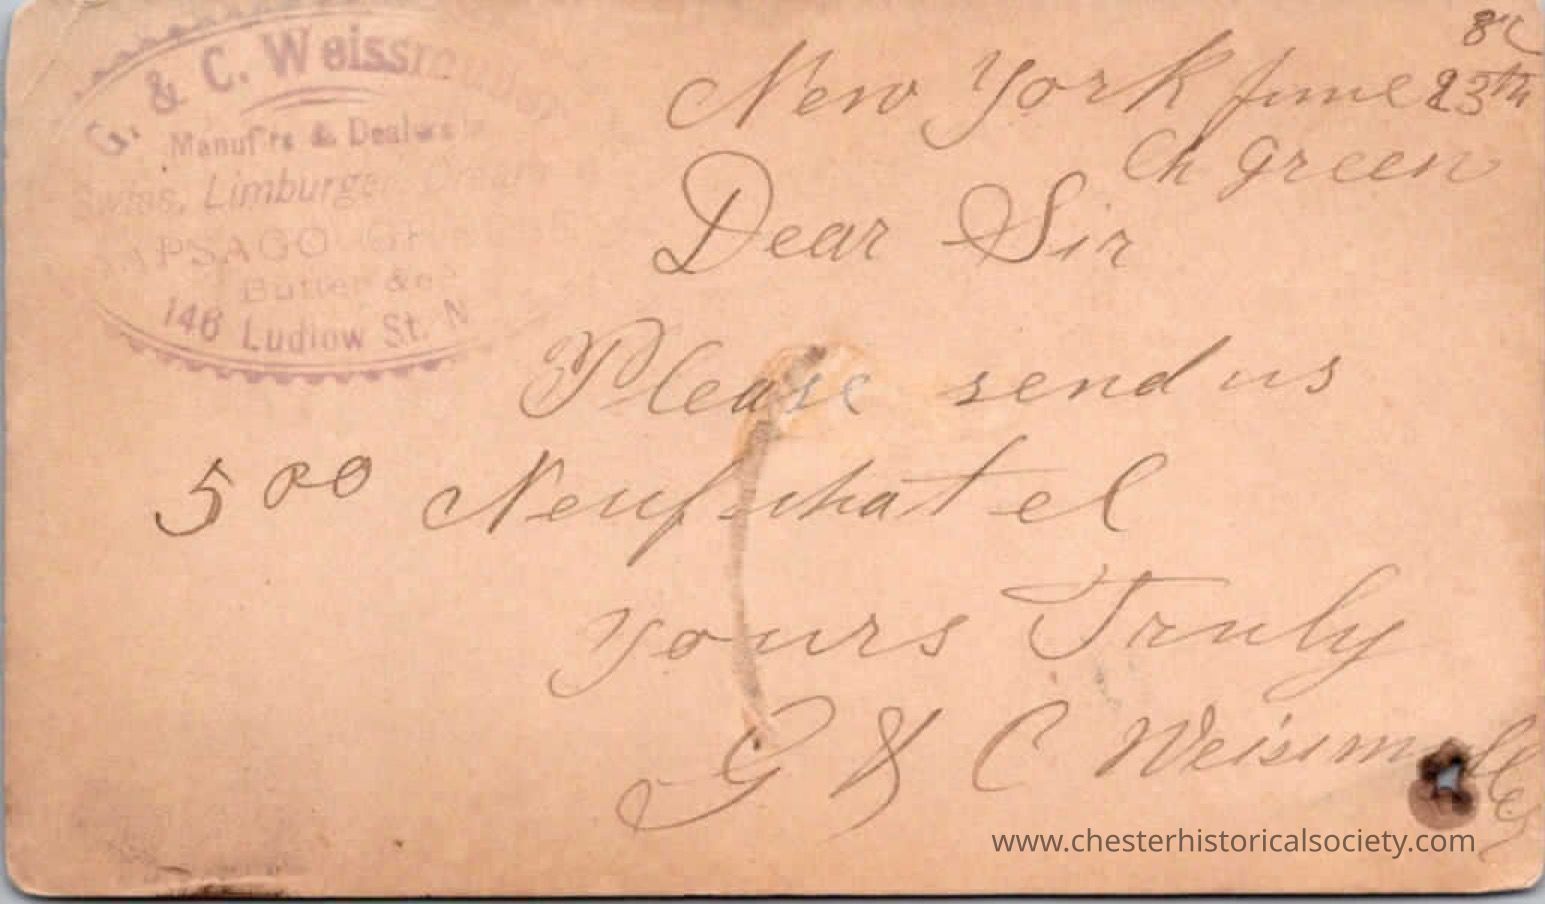 G. & C. Weissmuller
Manuf'rs & Dealers in
Swiss, Limburger, Cream
SAPSAGO
Butter &c
146 Ludlow St. N
82
New York June 23th
Ch Green
Dear Sir
Please send us
500 Neufchatel
Yours Truly
G & C Weissmuller
www.chesterhistoricalsociety.com